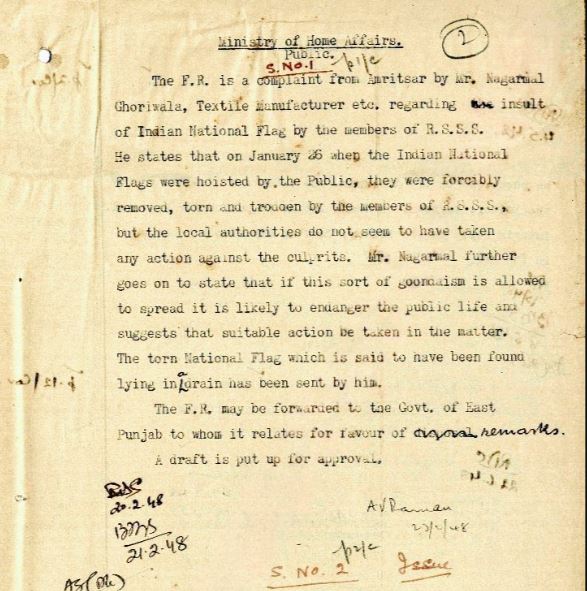 2
Ministry of Home Affairs.
Public.
S. No. 1 p1/c
The F.R. is a complaint from Amritsar by Mr. Nagarmal
Ghoriwala, Textile Manufacturer etc. regarding insult
of Indian National Flag by the members of R.S.S.S.
He states that on January 26 when the Indian National
Flags were hoisted by the Public, they were forcibly
removed, torn and trodden by the members of R.S.S.S.,
but the local authorities do not seem to have taken
any action against the culprits. Mr. Nagarmal further
goes on to state that if this sort of goondaism is allowed
to spread it is likely to endanger the public life and
suggests that suitable action be taken in the matter.
The torn National Flag which is said to have been found
lying in a drain has been sent by him.
The F.R. may be forwarded to the Govt. of East
Punjab to whom it relates for favour of remarks.
A draft is put up for approval.
20.2.48
21-2-48
AVRaman
p2/c
S. No. 2 Issue